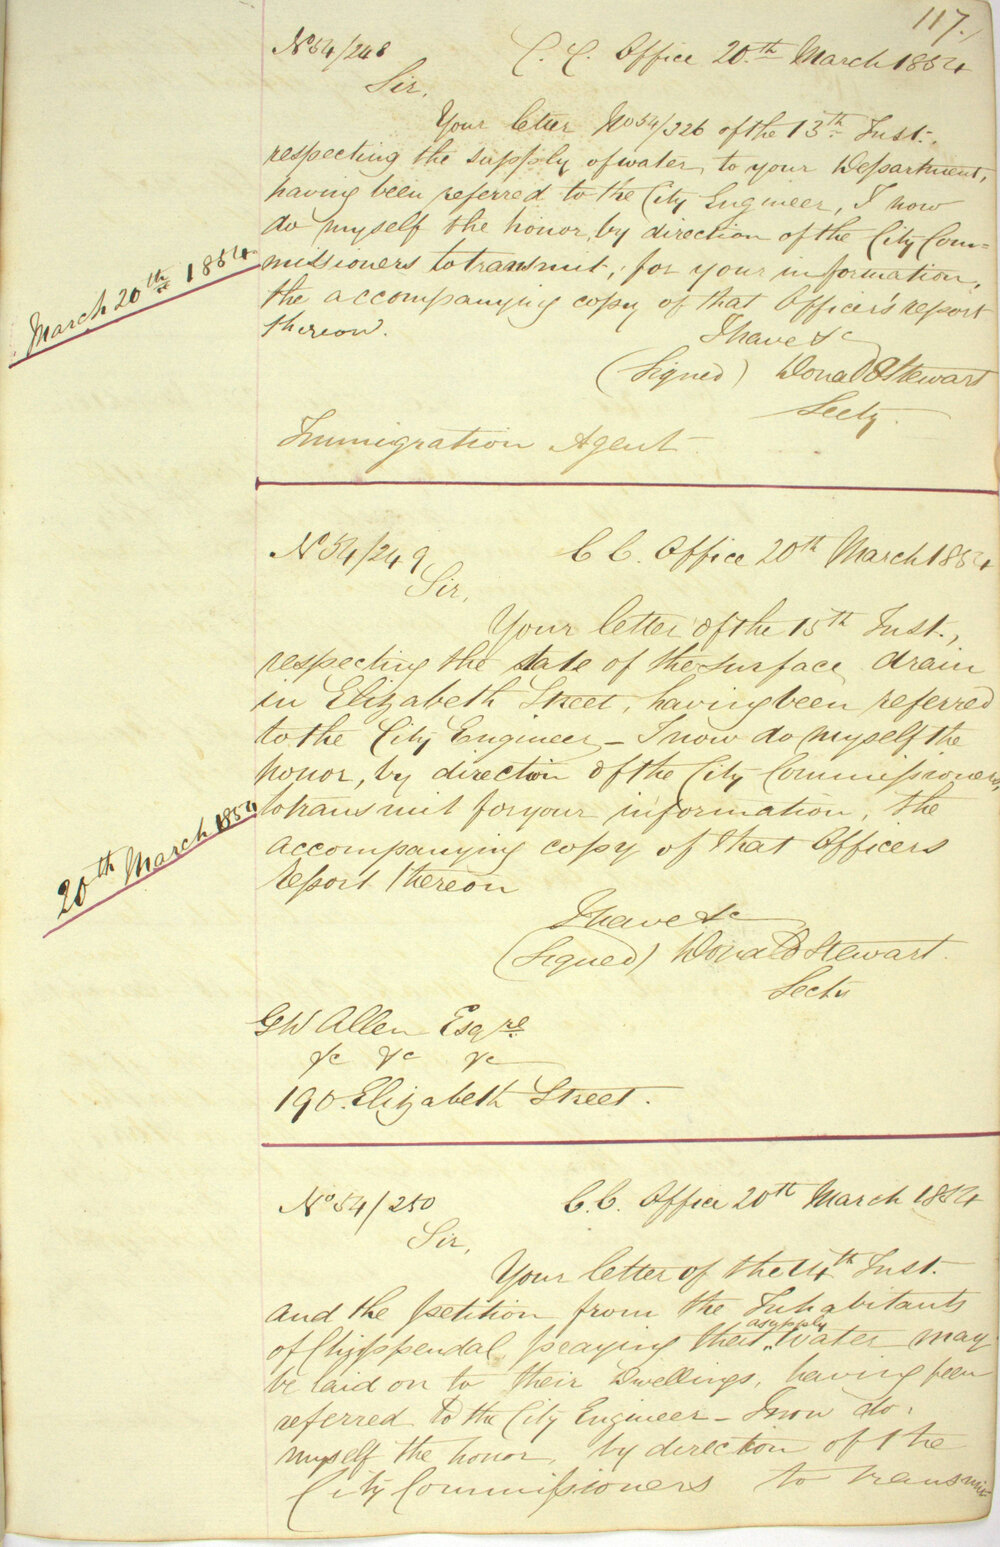 117.
No 54/248 C. C. Office 20th March 1854
Sir,
Your letter No 54/226 of the 13th Inst.,
respecting the supply of water to your Department,
having been referred to the City Engineer, I now
do myself the honor, by direction of the City Com=
missioners to transmit, for your information,
the accompanying copy of that Officer's report
thereon.
I have &c
(Signed) Donald Stewart
Secty.
Immigration Agent
March 20th 1854
No 54/249 C C. Office 20th March 1854
Sir,
Your letter of the 15th Inst.,
respecting the state of the surface drain
in Elizabeth Street, having been referred
to the City Engineer – I now do myself the
honor, by direction of the City Commissioners,
to transmit for your information, the
accompanying copy of that Officers
report thereon
I have &c
(Signed) Donald Stewart.
Secty
20th March 1854
G W Allen Esqre
&c &c &c
190. Elizabeth Street.
No 54/250 C. C. Office 20th March 1854
Sir,
Your letter of the 14th Inst.
and the petition from the Inhabitants
of Chippendal praying that a supply Water may
be laid on to their Dwellings, having been
referred to the City Engineer – I now do
myself the honor, by direction of the
City Commissioners to transmit